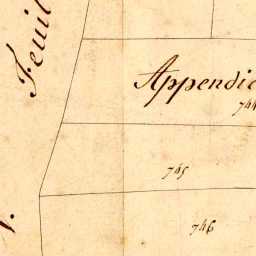 Feuil
Appendic
744
745
746